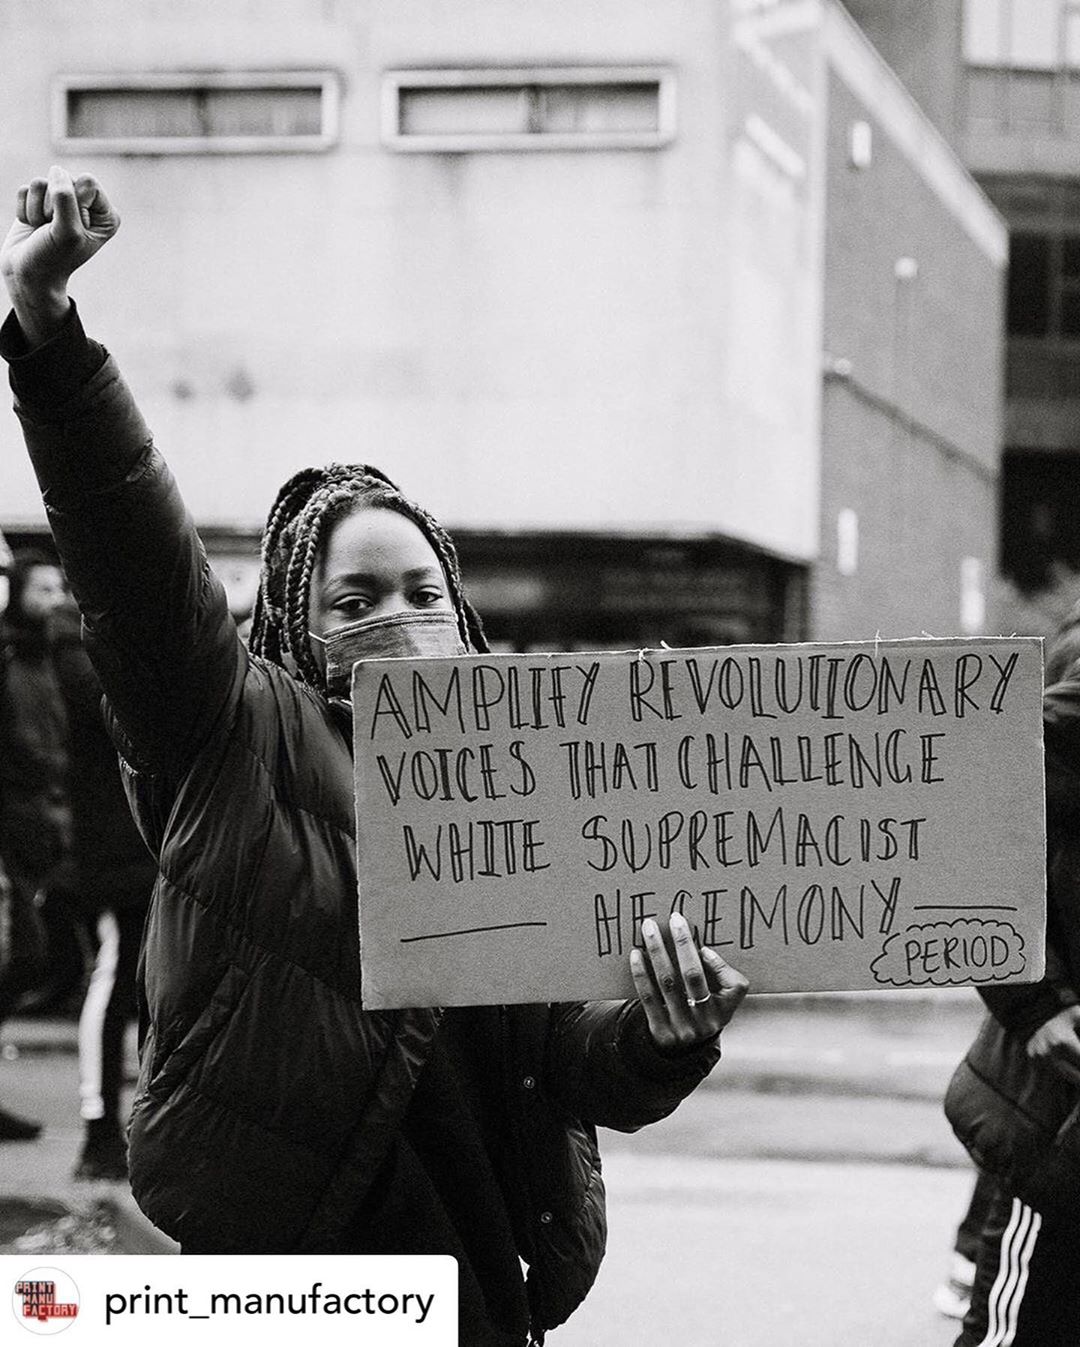 AMPLIFY REVOLUTIONARY
VOICES THAT CHALLENGE
WHITE SUPREMACIST
HEGEMONY
PERIOD
PRINT
MANU
FACTORY
print_manufactory